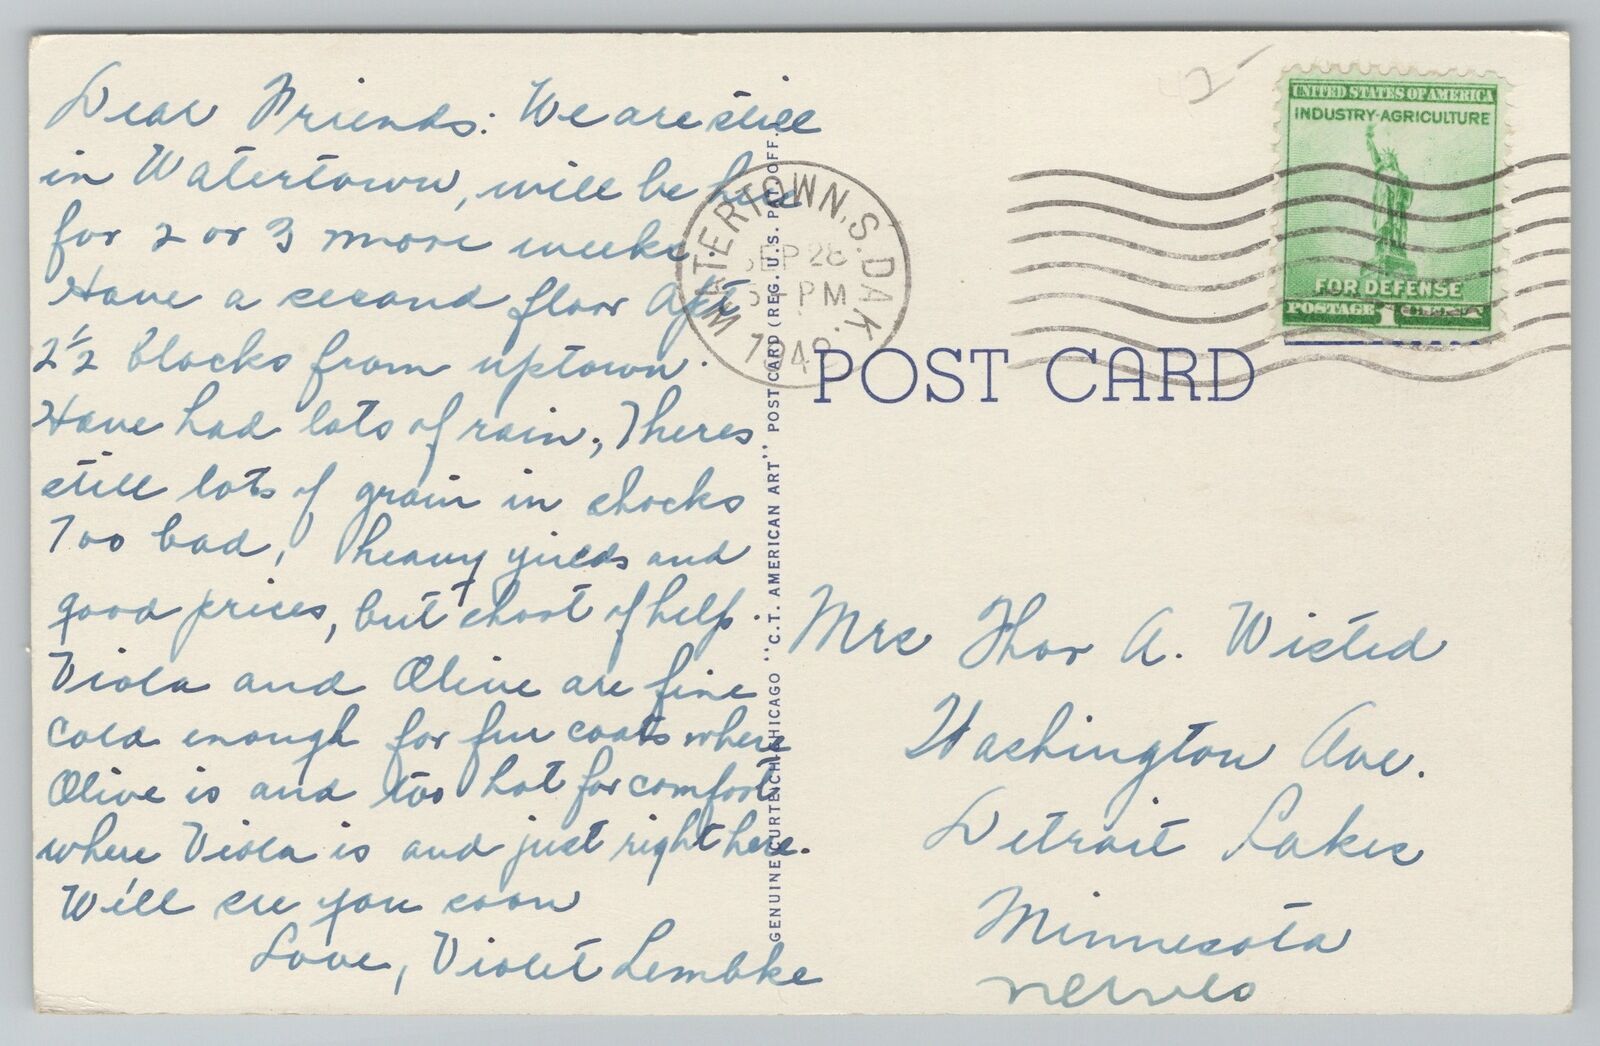 Dear Friends: We are still
in Watertown, will be here
for 2 or 3 more weeks.
Have a second floor apt
2 1/2 blocks from uptown.
Have had lots of rain, Theres
still lots of grain in shocks
Too bad, heavy yields and
good prices, but short of help
Viola and Olive are fine
Cold enough for fur coats where
Olive is and too hot for comfort
where Viola is and just right here.
We'll see you soon
Love, Violet Lembke
GENUINE CURTEICH-CHICAGO "C.T. AMERICAN ART" POST CARD (REG. U.S. PAT. OFF.)
WATERTOWN, S. DAK.
SEP 28
PM
2-
UNITED STATES OF AMERICA
INDUSTRY-AGRICULTURE
FOR DEFENSE
POSTAGE 1 CENT
POST CARD
Mrs Thor A. Wisted
Washington Ave.
Detroit Lakes
Minnesota